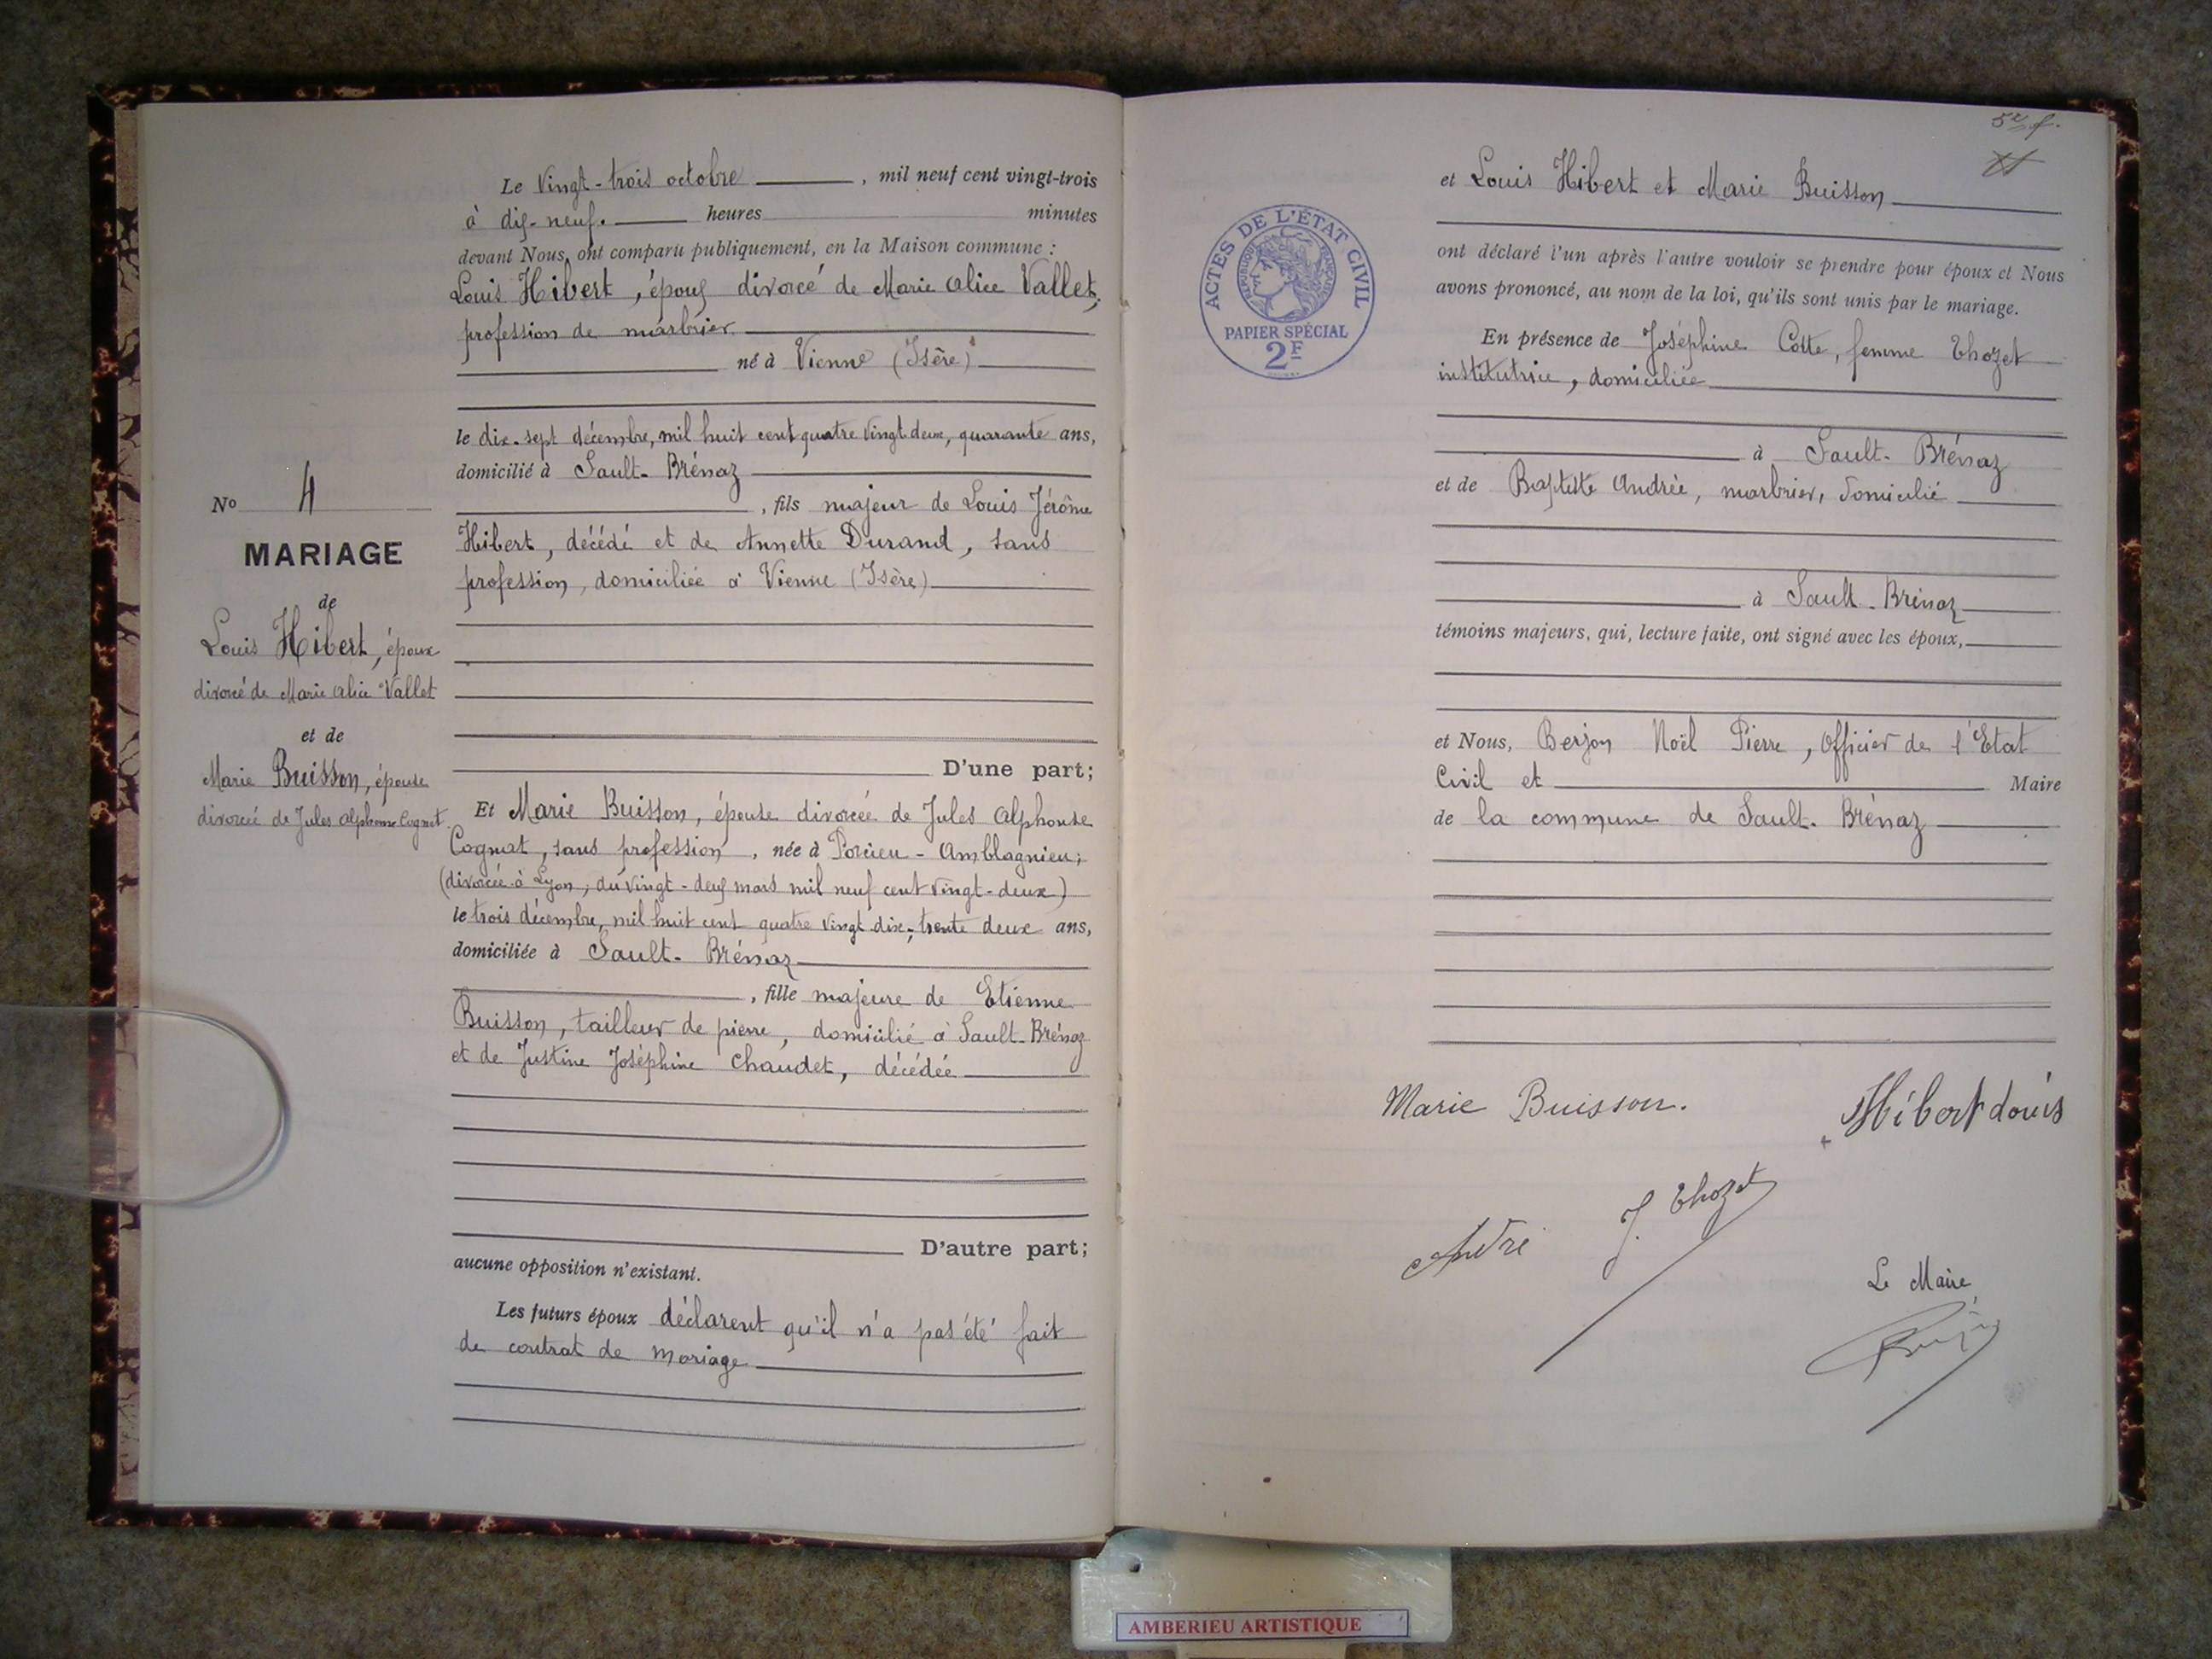 No 4
MARIAGE
de
Louis Hibert, époux
divorcé de Marie Alice Vallet
et de
Marie Buisson, épouse
divorcée de Jules Alphonse Cognat
Le Vingt-trois octobre, mil neuf cent vingt-trois
à dix-neuf. heures minutes
devant Nous, ont comparu publiquement, en la Maison commune :
Louis Hibert, époux divorcé de Marie Alice Vallet,
profession de marbrier
né à Vienne (Isère)
le dix-sept décembre, mil huit cent quatre vingt deux, quarante ans,
domicilié à Sault-Brénaz
, fils majeur de Louis Jérôme
Hibert, décédé et de Annette Durand, sans
profession, domiciliée à Vienne (Isère)
D'une part;
Et Marie Buisson, épouse divorcée de Jules Alphonse
Cognat, sans profession, née à Porcieu-Amblagnieu;
(divorcée à Lyon, du vingt-deux mars mil neuf cent vingt-deux)
le trois décembre, mil huit cent quatre vingt dix, trente deux ans,
domiciliée à Sault-Brénaz
, fille majeure de Etienne
Buisson, tailleur de pierre, domicilié à Sault-Brénaz
et de Justine Joséphine Chaudet, décédée
D'autre part;
aucune opposition n'existant.
Les futurs époux déclarent qu'il n'a pas été fait
de contrat de mariage
ACTES DE L'ÉTAT CIVIL
RÉPUBLIQUE FRANÇAISE
PAPIER SPÉCIAL
2F
et Louis Hibert et Marie Buisson
ont déclaré l'un après l'autre vouloir se prendre pour époux et Nous
avons prononcé, au nom de la loi, qu'ils sont unis par le mariage.
En présence de Joséphine Cotte, femme Thozet
institutrice, domiciliée
à Sault-Brénaz
et de Baptiste Andrée, marbrier, domicilié
à Sault-Brénaz
témoins majeurs, qui, lecture faite, ont signé avec les époux,
et Nous, Berjon Noël Pierre, Officier de l'Etat
Civil et Maire
de la commune de Sault-Brénaz
Marie Buisson.
Hibert Louis
André
J. Thozet
Le Maire
AMBERIEU ARTISTIQUE